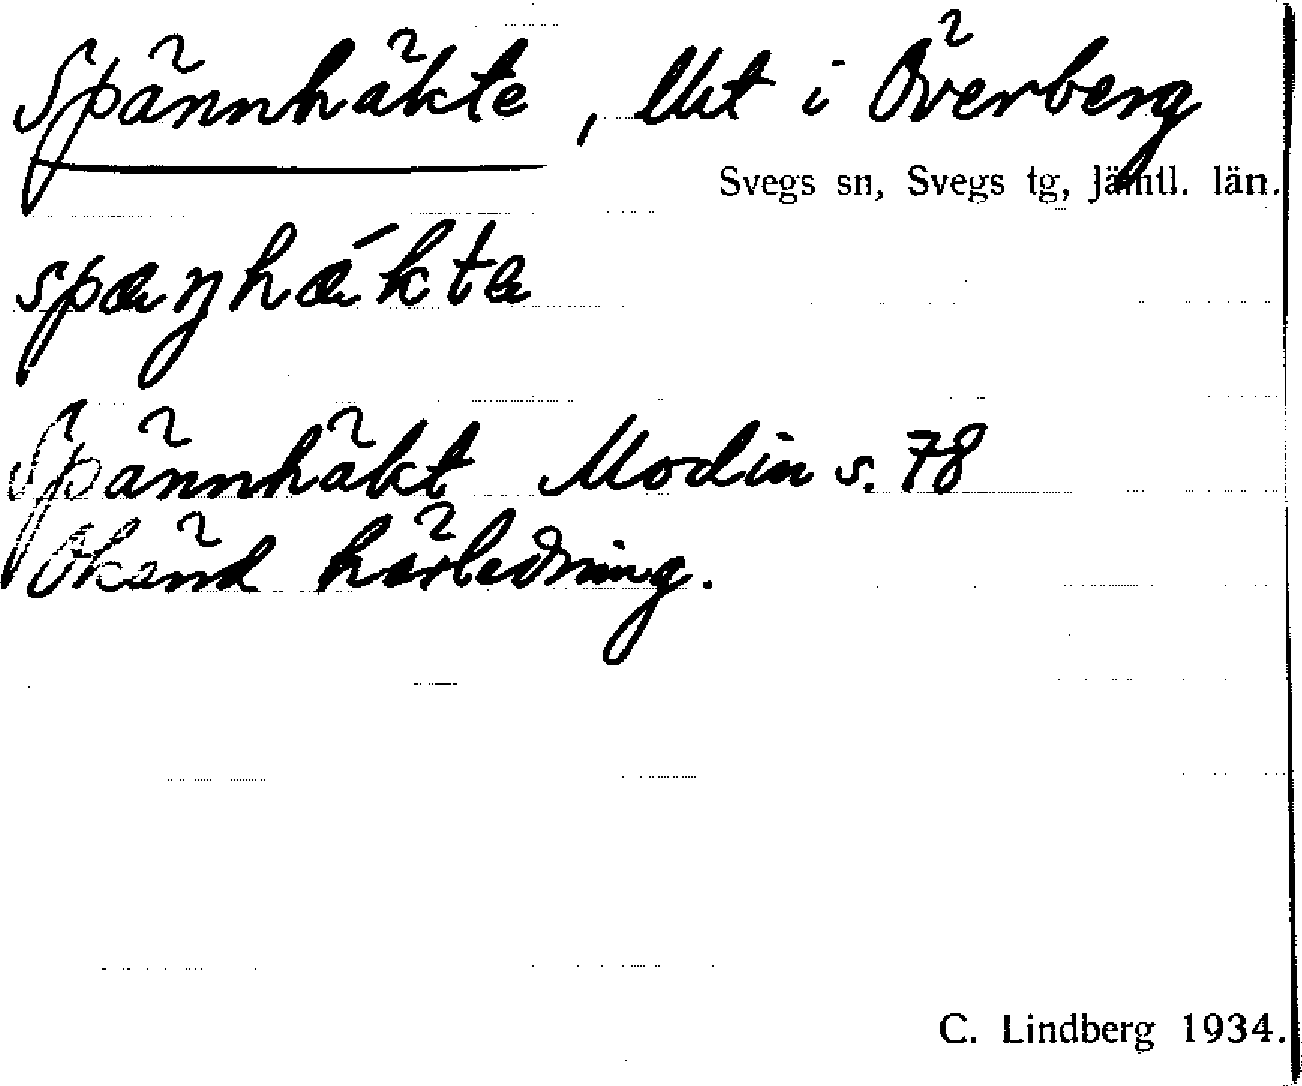 Spännhäkte, Utst i Överberg
Svegs sn, Svegs tg, Jämtl. län.
spæŋhǽktæ
Spännhäkt Modin s. 78
Okänd härledning.
C. Lindberg 1934.